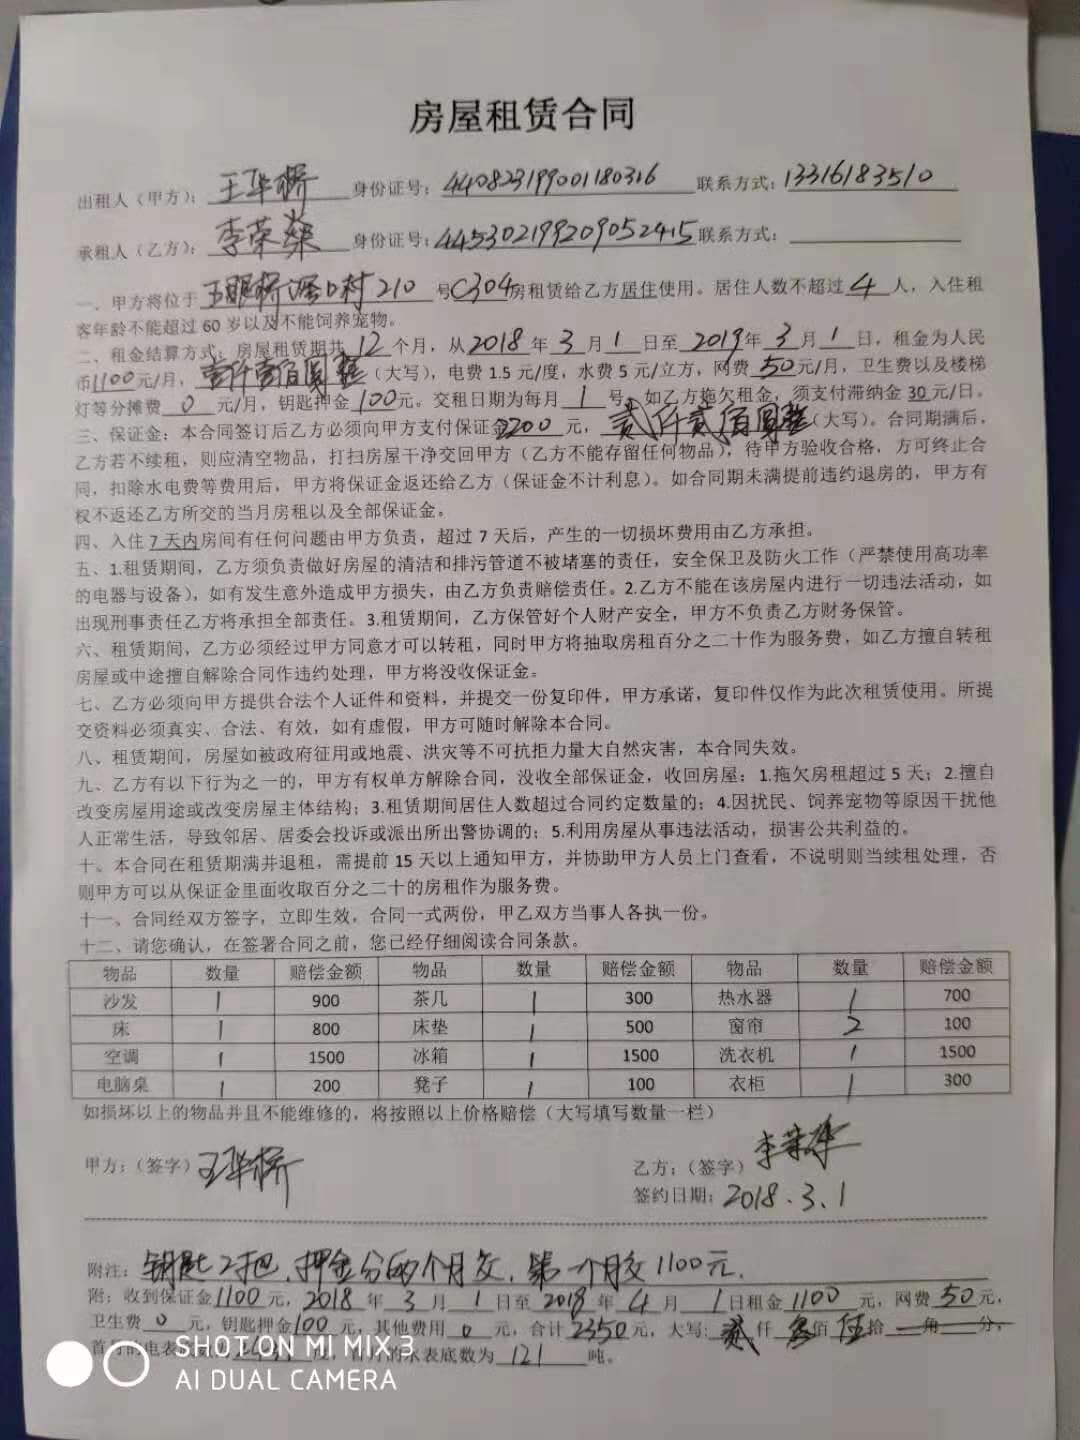 房屋租赁合同
出租人（甲方）：王华桥 身份证号：440823199001180316 联系方式：13316183510
承租人（乙方）：李荣燊 身份证号：445302199209052415 联系方式：
一、甲方将位于 玉眼桥涌口村210 号C304房租赁给乙方居住使用。居住人数不超过 4 人，入住租
客年龄不能超过 60 岁以及不能饲养宠物。
二、租金结算方式：房屋租赁期共 12 个月，从2018 年 3 月 1 日至 2019年 3 月 1 日，租金为人民
币1100元/月，壹仟壹佰圆整（大写），电费 1.5 元/度，水费 5 元/立方，网费 50元/月，卫生费以及楼梯
灯等分摊费 0 元/月，钥匙押金 100元。交租日期为每月 1 号，如乙方拖欠租金，须支付滞纳金 30 元/日。
三、保证金：本合同签订后乙方必须向甲方支付保证金2200 元，贰仟贰佰圆整（大写）。合同期满后，
乙方若不续租，则应清空物品，打扫房屋干净交回甲方（乙方不能存留任何物品），待甲方验收合格，方可终止合
同，扣除水电费等费用后，甲方将保证金返还给乙方（保证金不计利息）。如合同期未满提前违约退房的，甲方有
权不返还乙方所交的当月房租以及全部保证金。
四、入住 7 天内房间有任何问题由甲方负责，超过 7 天后，产生的一切损坏费用由乙方承担。
五、1.租赁期间，乙方须负责做好房屋的清洁和排污管道不被堵塞的责任，安全保卫及防火工作（严禁使用高功率
的电器与设备），如有发生意外造成甲方损失，由乙方负责赔偿责任。2.乙方不能在该房屋内进行一切违法活动，如
出现刑事责任乙方将承担全部责任。3.租赁期间，乙方保管好个人财产安全，甲方不负责乙方财务保管。
六、租赁期间，乙方必须经过甲方同意才可以转租，同时甲方将抽取房租百分之二十作为服务费，如乙方擅自转租
房屋或中途擅自解除合同作违约处理，甲方将没收保证金。
七、乙方必须向甲方提供合法个人证件和资料，并提交一份复印件，甲方承诺，复印件仅作为此次租赁使用。所提
交资料必须真实、合法、有效，如有虚假，甲方可随时解除本合同。
八、租赁期间，房屋如被政府征用或地震、洪灾等不可抗拒力量大自然灾害，本合同失效。
九、乙方有以下行为之一的，甲方有权单方解除合同，没收全部保证金，收回房屋：1.拖欠房租超过 5 天；2.擅自
改变房屋用途或改变房屋主体结构；3.租赁期间居住人数超过合同约定数量的；4.因扰民、饲养宠物等原因干扰他
人正常生活，导致邻居、居委会投诉或派出所出警协调的；5.利用房屋从事违法活动，损害公共利益的。
十、本合同在租赁期满并退租，需提前 15 天以上通知甲方，并协助甲方人员上门查看，不说明则当续租处理，否
则甲方可以从保证金里面收取百分之二十的房租作为服务费。
十一、合同经双方签字，立即生效，合同一式两份，甲乙双方当事人各执一份。
十二、请您确认，在签署合同之前，您已经仔细阅读合同条款。
物品 数量 赔偿金额 物品 数量 赔偿金额 物品 数量 赔偿金额
沙发 1 900 茶几 1 300 热水器 1 700
床 1 800 床垫 1 500 窗帘 2 100
空调 1 1500 冰箱 1 1500 洗衣机 1 1500
电脑桌 1 200 凳子 1 100 衣柜 1 300
如损坏以上的物品并且不能维修的，将按照以上价格赔偿（大写填写数量一栏）
甲方：（签字）王华桥 乙方：（签字）李荣燊
签约日期：2018.3.1
附注：钥匙2把，押金分两个月交，第一个月交1100元.
附：收到保证金1100 元，2018 年 3 月 1 日至 2018 年 4 月 1 日租金 1100 元，网费 50元，
卫生费 0 元，钥匙押金100 元，其他费用 0 元，合计 2350元，大写：贰 仟 叁佰 伍拾 角 分，
首月的电表 水表底数为 121 吨。
SHOT ON MI MIX 3
AI DUAL CAMERA